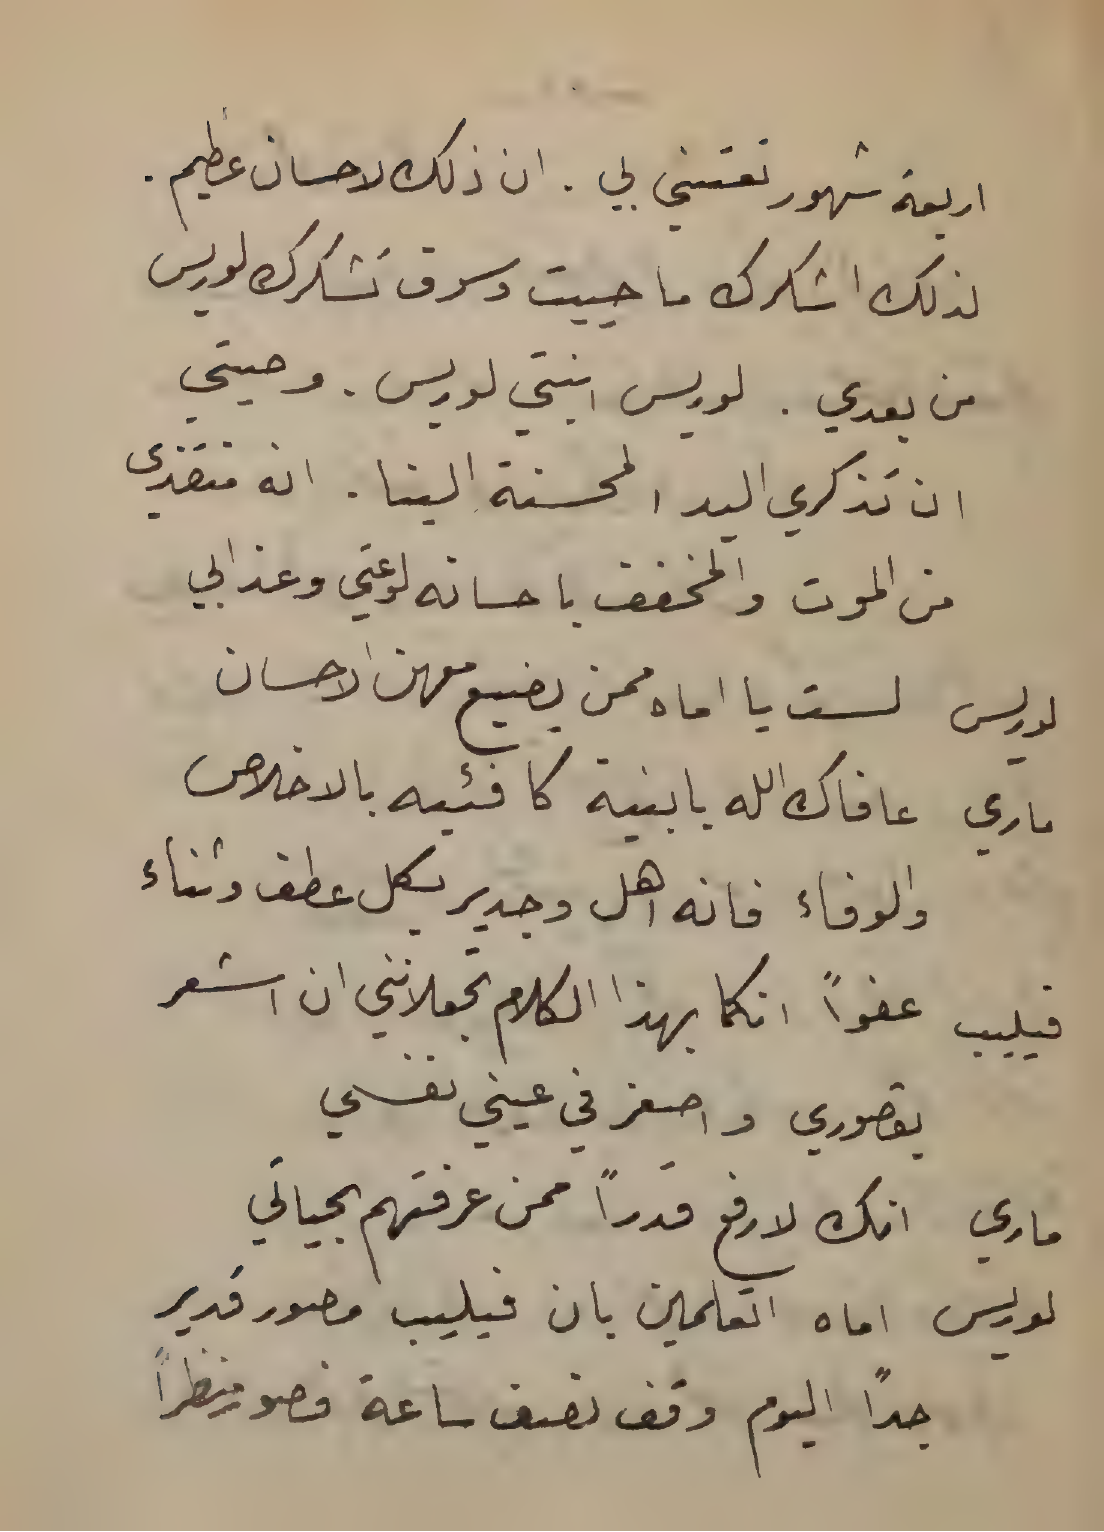 اربعة شهور تعتني بي . ان ذلك لاحسان عظيم .
لذلك اشكرك ما حييت وسوف تشكرك لوريس
من بعدي . لوريس ابنتي لوريس . وصيتي
ان تذكري اليد المحسنة الينا . انه منقذي
من الموت والمخفف باحسانه لوعتي وعذابي
لوريس لست يا اماه ممن يضيع معهن الاحسان
ماري عافاك الله يابنية كافئيه بالاخلاص
والوفاء فانه اهل وجدير بكل عطف وثناء
فيليب عفواً انكما بهذا الكلام تجعلانني ان اشعر
بقصوري و اصغر في عيني نفسي
ماري انك لارفع قدراً ممن عرفتهم بحياتي
لوريس اماه اتعلمين بان فيليب مصور قدير
جداً اليوم وقف نصف ساعة فصور منظراً